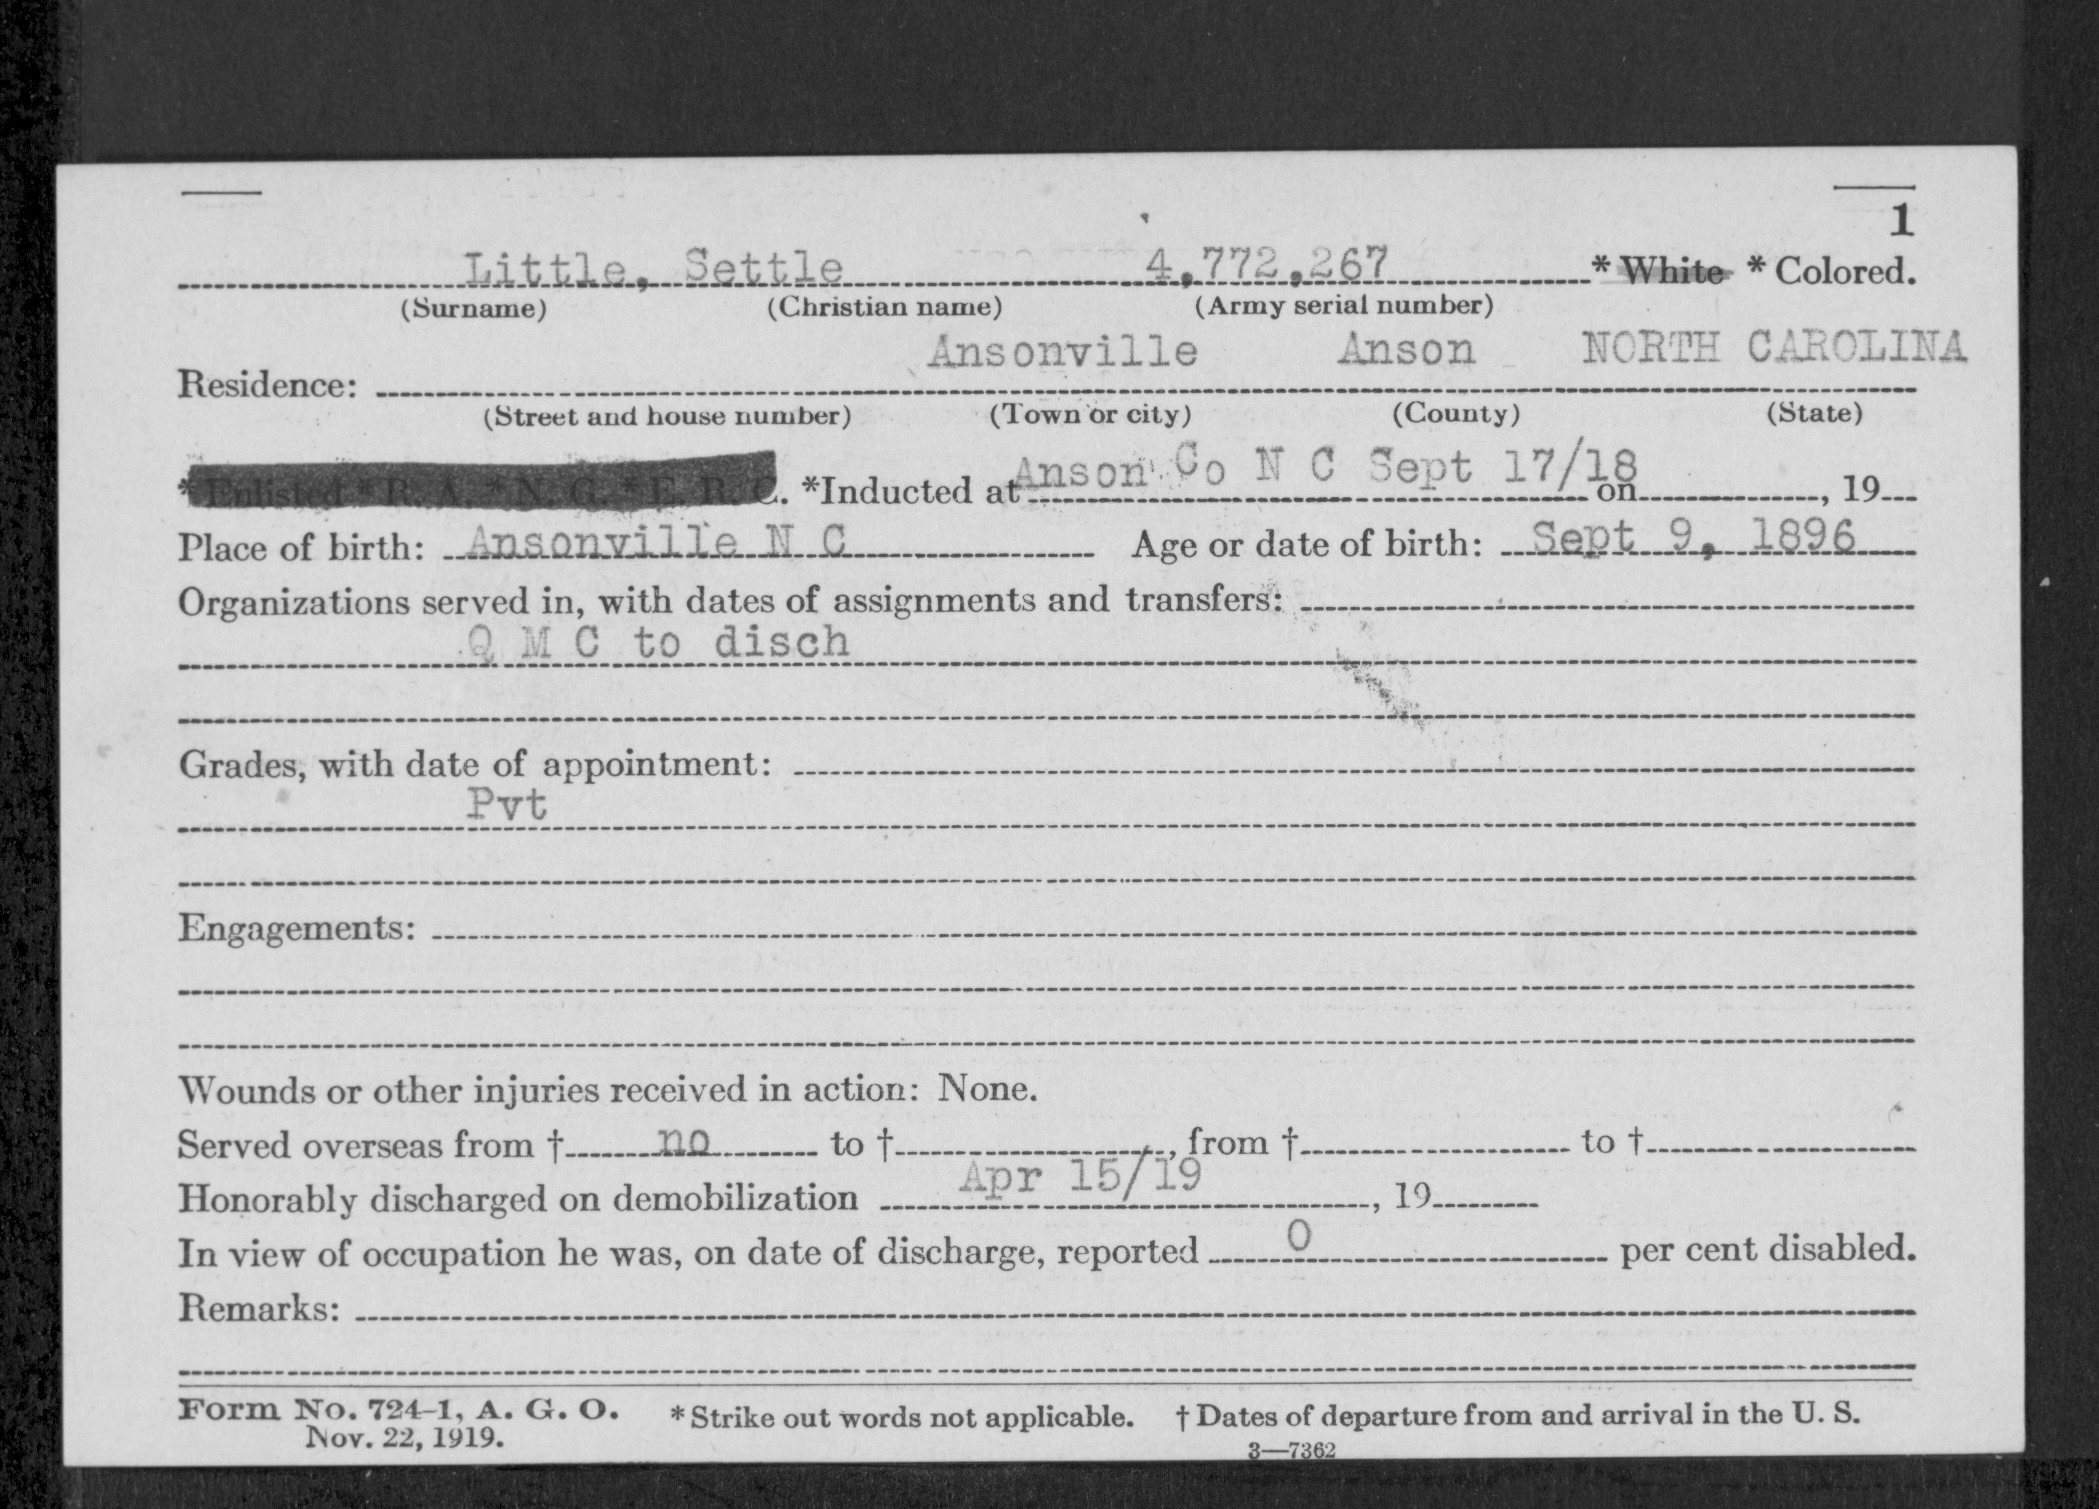 1
Little, Settle 4,772,267 * White * Colored.
(Surname) (Christian name) (Army serial number)
Ansonville Anson NORTH CAROLINA
Residence:
(Street and house number) (Town or city) (County) (State)
* Enlisted * R. A. * N. G. * E. R. C. *Inducted at Anson Co N C Sept 17/18 on , 19
Place of birth: Ansonville N C Age or date of birth: Sept 9, 1896
Organizations served in, with dates of assignments and transfers:
Q M C to disch
Grades, with date of appointment:
Pvt
Engagements:
Wounds or other injuries received in action: None.
Served overseas from † no to † , from † to †
Honorably discharged on demobilization Apr 15/19 , 19
In view of occupation he was, on date of discharge, reported 0 per cent disabled.
Remarks:
Form No. 724-1, A. G. O. * Strike out words not applicable. † Dates of departure from and arrival in the U. S.
Nov. 22, 1919.
3—7362